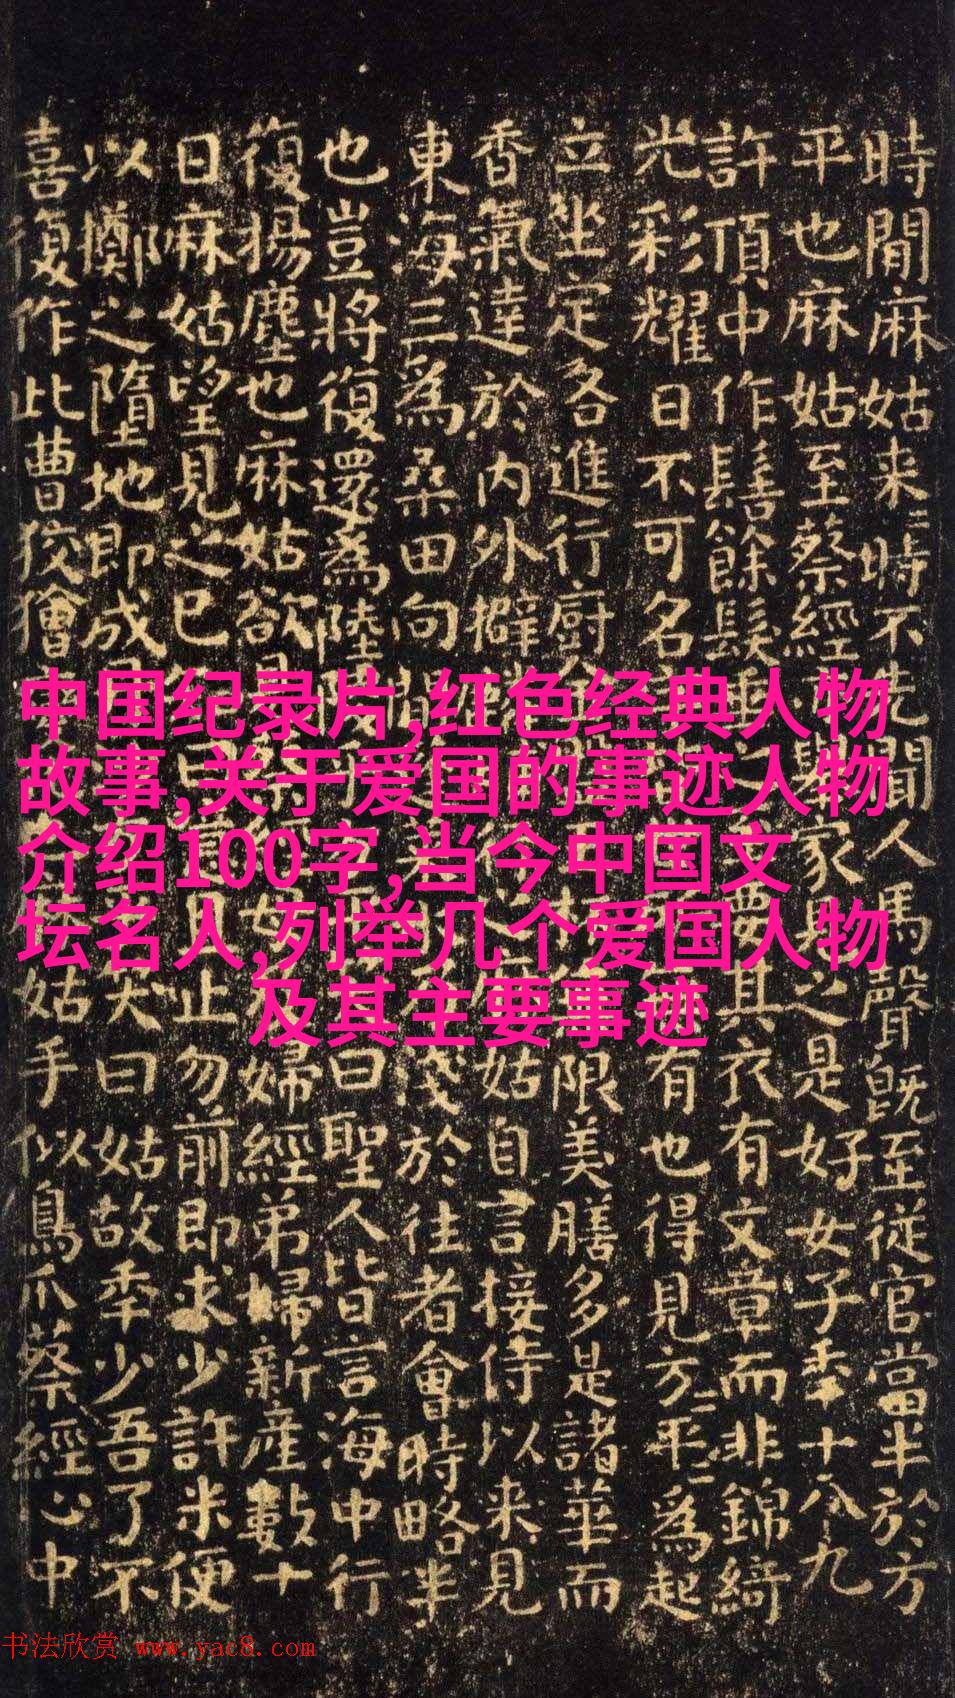 時間麻姑来二時不先聞人馬聲既至従官當半於方
平也麻姑至蔡經舉家見之是好女子年十八九
許頂中作髻餘髮之要其衣有文章而非錦綺
光彩耀日不可名有也得見方平二為起
立坐定各進行廚金限美膳多是諸華而
香氣達於内外擗姑自言接侍以来見
東海三為桑田向淺於往者會時略半
也豈將復還為陸曰聖人皆言海中行
復揚塵也麻姑欲婦經弟婦新産數十
日麻姑望見之已止勿前即求少許米便
以擲之墮地即成曰姑故年少吾了不
喜復作此曹狡獪姑手似鳥爪蔡經心中
中国纪录片,红色经典人物
故事,关于爱国的事迹人物
介绍100字,当今中国文
坛名人,列举几个爱国人物
及其主要事迹
书法欣赏 www.yac8.com